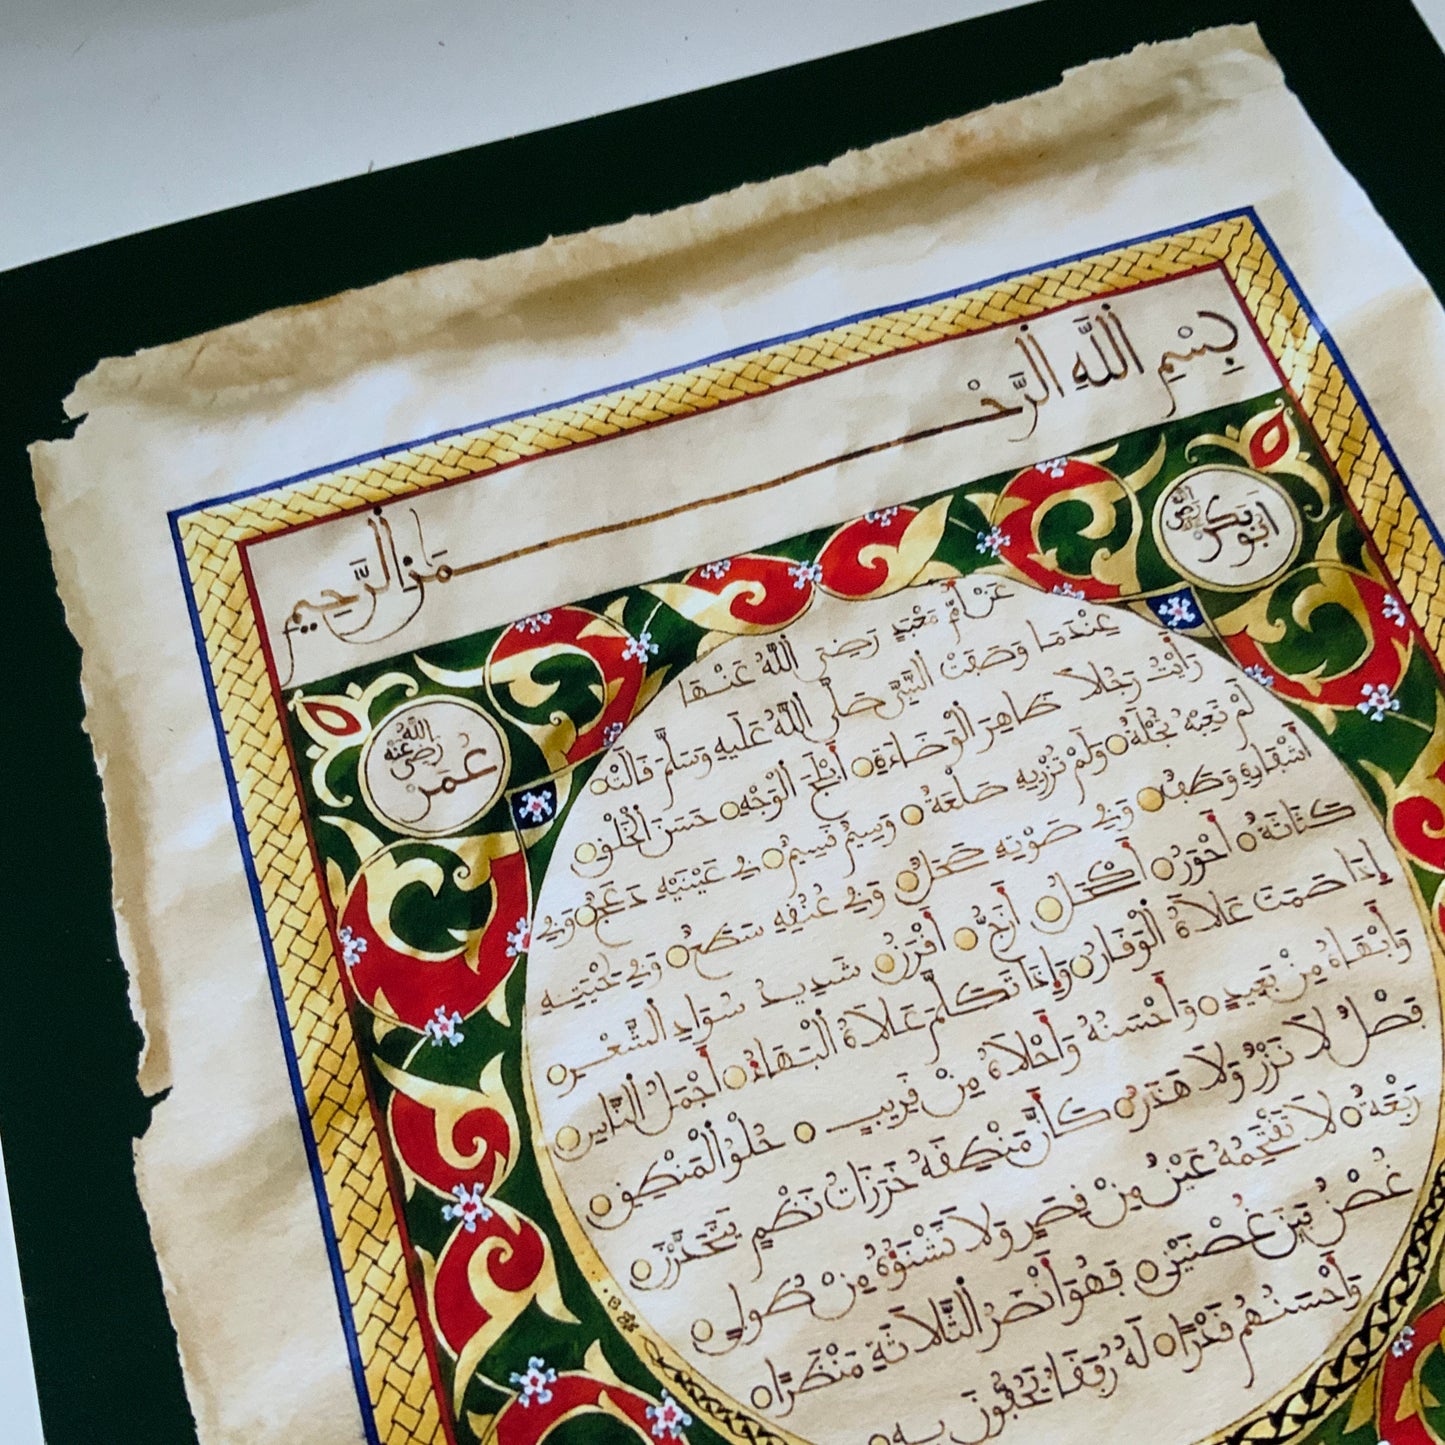 بِسْمِ اللَّهِ الرَّحْمَنِ الرَّحِيمِ
أبُو بَكْر رَضِيَ اللَّهُ عَنْهُ
عُمَرْ رَضِيَ اللَّهُ عَنْهُ
عَنْ أُمِّ مَعْبَدٍ رَضِيَ اللَّهُ عَنْهَا
عِنْدَمَا وَصَفَتْ النَّبِيَّ صَلَّى اللَّهُ عَلَيْهِ وَسَلَّمَ قَالَتْ
رَأَيْتُ رَجُلاً ظَاهِرَ الْوَضَاءَةِ أَبْلَجَ الْوَجْهِ حَسَنَ الْخَلْقِ
لَمْ تَعِبْهُ ثُجْلَةٌ وَلَمْ تُزْرِيهِ صَلْعَةٌ وَسِيمٌ قَسِيمٌ فِي عَيْنَيْهِ دَعَجٌ وَفِي
أَشْفَارِهِ وَطَفٌ وَفِي صَوْتِهِ صَحَلٌ وَفِي عُنُقِهِ سَطَعٌ وَفِي لِحْيَتِهِ
كَثَاثَةٌ أَحْوَرُ أَكْحَلُ أَزَجُّ أَقْرَنُ شَدِيدُ سَوَادِ الشَّعْرِ
إِذَا صَمَتَ عَلاَهُ الْوَقَارُ وَإِذَا تَكَلَّمَ عَلاَهُ الْبَهَاءُ أَجْمَلُ النَّاسِ
وَأَبْهَاهُ مِنْ بَعِيدٍ وَأَحْسَنُهُ وَأَحْلاَهُ مِنْ قَرِيبٍ حُلْوُ الْمَنْطِقِ
فَصْلٌ لاَ نَزْرٌ وَلاَ هَذَرٌ كَأَنَّ مَنْطِقَهُ خَرَزَاتُ نَظْمٍ يَتَحَدَّرْنَ
رَبْعَةٌ لاَ تَقْتَحِمُهُ عَيْنٌ مِنْ قِصَرٍ وَلاَ تَشْنَؤُهُ مِنْ طُولٍ
غُصْنٌ بَيْنَ غُصْنَيْنِ فَهُوَ أَنْضَرُ الثَّلاَثَةِ مَنْظَرًا
وَأَحْسَنُهُمْ قَدْرًا لَهُ رُفَقَاءُ يَحُفُّونَ بِهِ